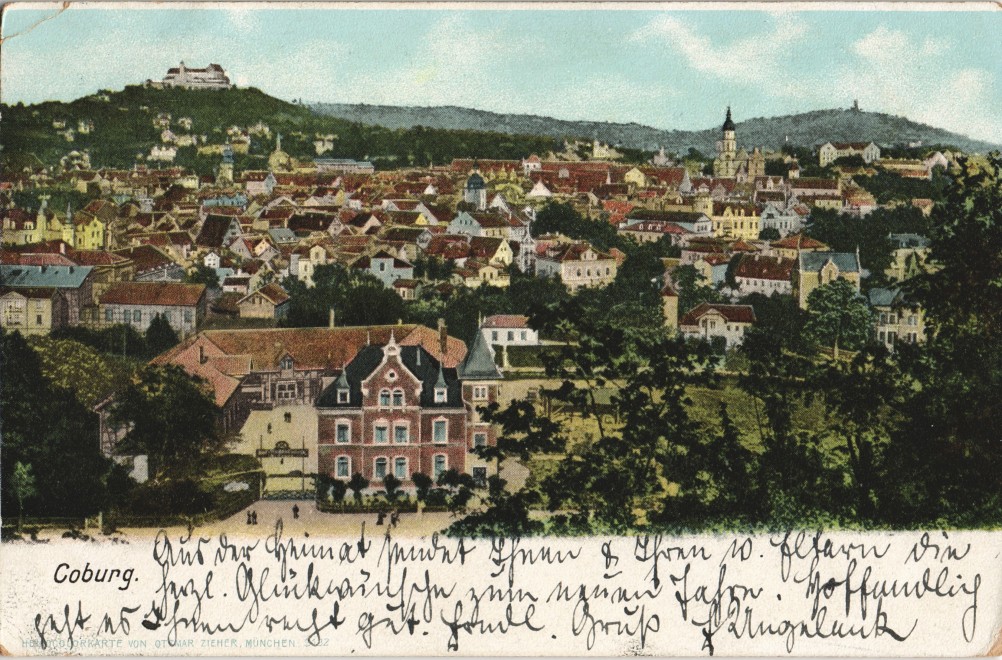 Aus der Heimat sendet Ihnen & Ihren w. Eltern die
Coburg.
herzl. Glückwünsche zum neuen Jahre. Hoffendlich
geht es Ihnen recht gut. Frdl. Gruß
HOCHCOLORKARTE VON OTTMAR ZIEHER, MÜNCHEN